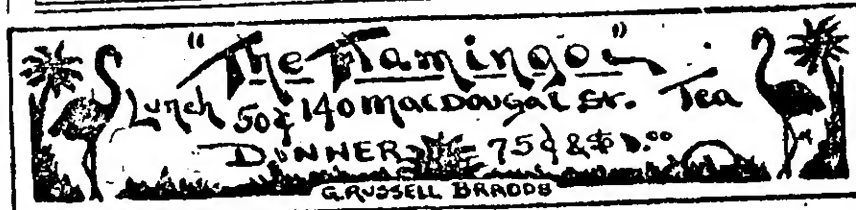 "The Flamingo"
Lunch 50¢ 140 MacDougal St. Tea
DINNER 75¢ & $1.00
G. RUSSELL BRADDS